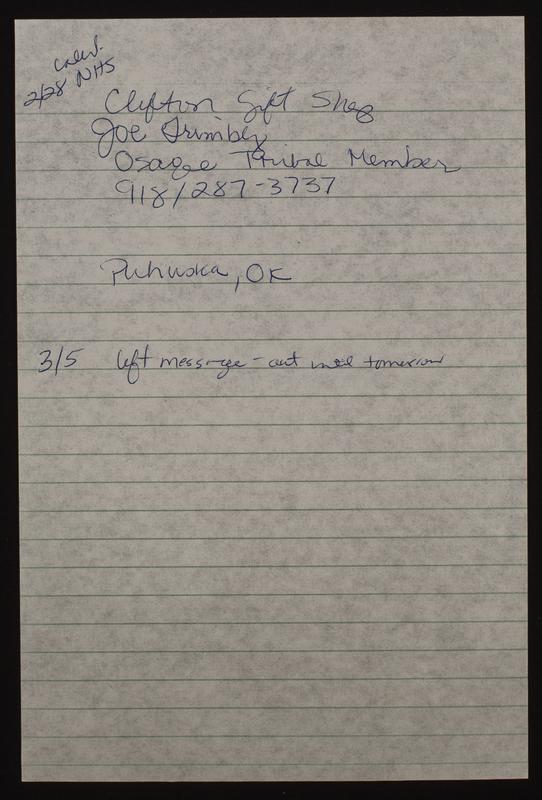 called
2/28 NHS
Clifton Gift Shop
Joe Trumbly
Osage Tribal Member
918/287-3737
Puhuska, OK
3/5 left message - out until tomorrow